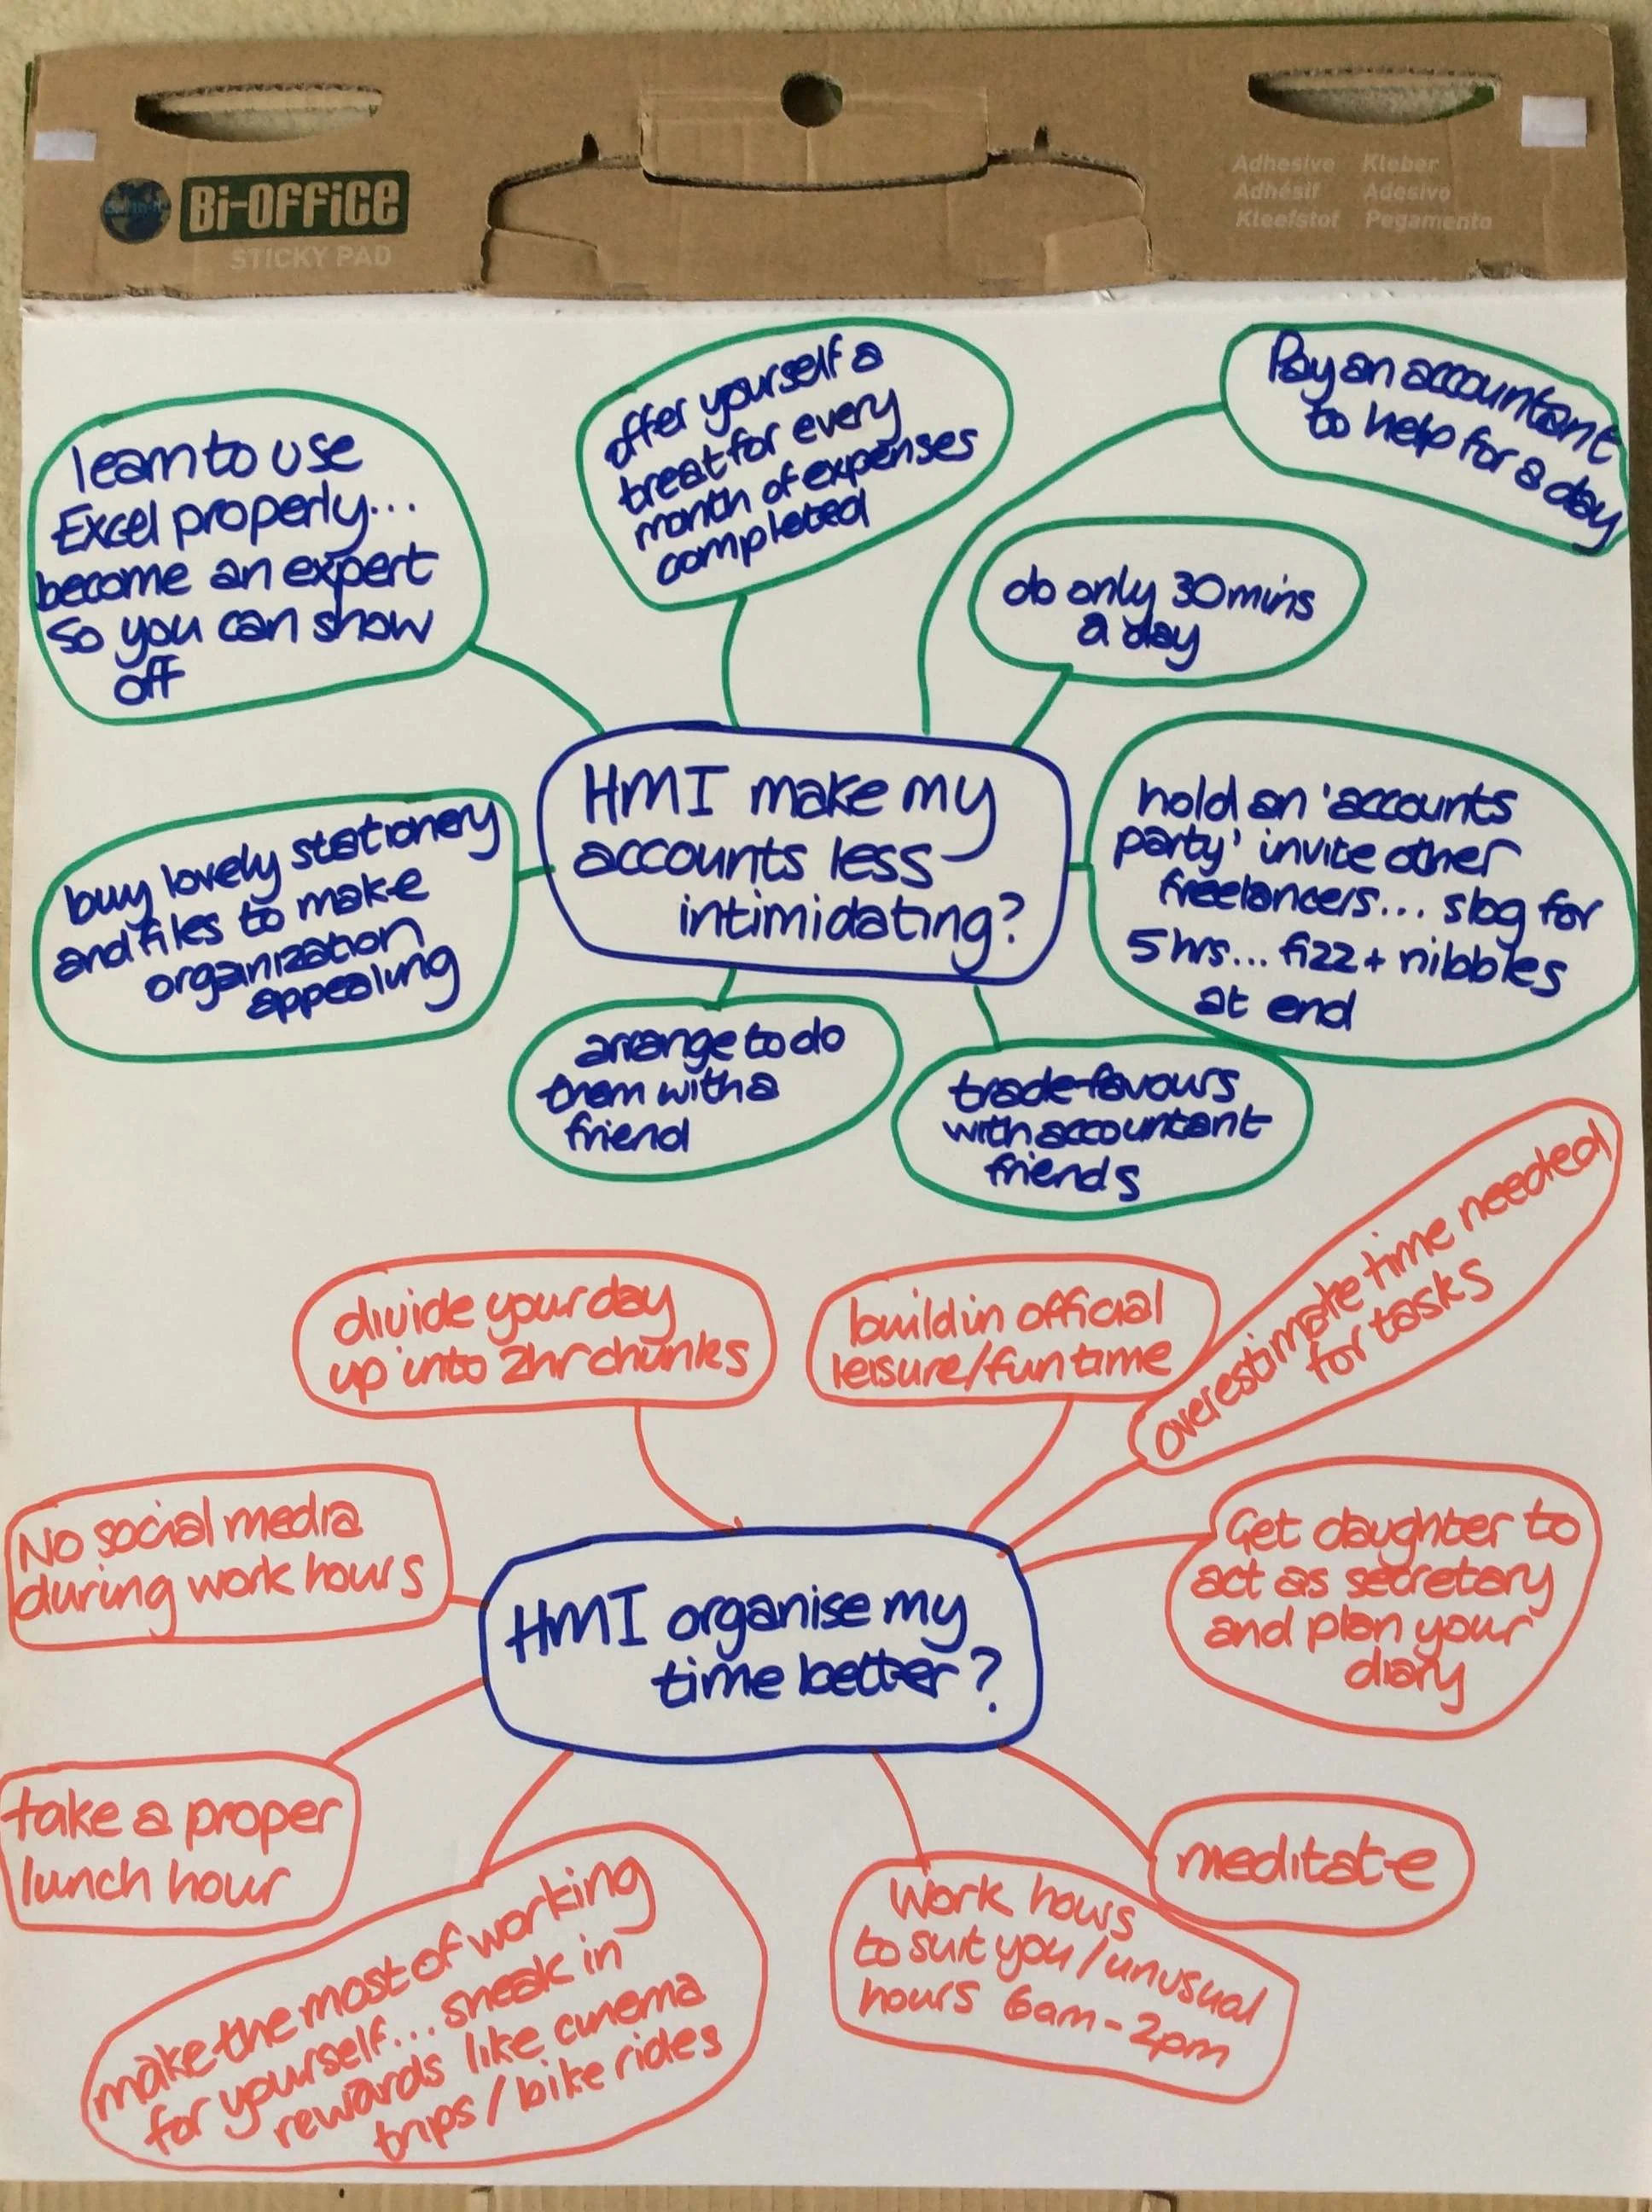 Bi-OFFiCE
STICKY PAD
Adhesive Kleber
Adhésif Adesivo
Kleefstof Pegamento
learn to use
Excel properly...
become an expert
so you can show
off
offer yourself a
treat for every
month of expenses
completed
Pay an accountant
to help for a day
do only 30mins
a day
HMI make my
accounts less
intimidating?
buy lovely stationery
and files to make
organization
appealing
hold an 'accounts
party' invite other
freelancers... slog for
5 hrs... fizz + nibbles
at end
arrange to do
them with a
friend
trade favours
with accountant
friends
divide your day
up into 2hr chunks
build in official
leisure/fun time
overestimate time needed
for tasks
No social media
during work hours
HMI organise my
time better?
Get daughter to
act as secretary
and plan your
diary
take a proper
lunch hour
make the most of working
for yourself... sneak in
rewards like cinema
trips / bike rides
Work hours
to suit you / unusual
hours 6am - 2pm
meditate